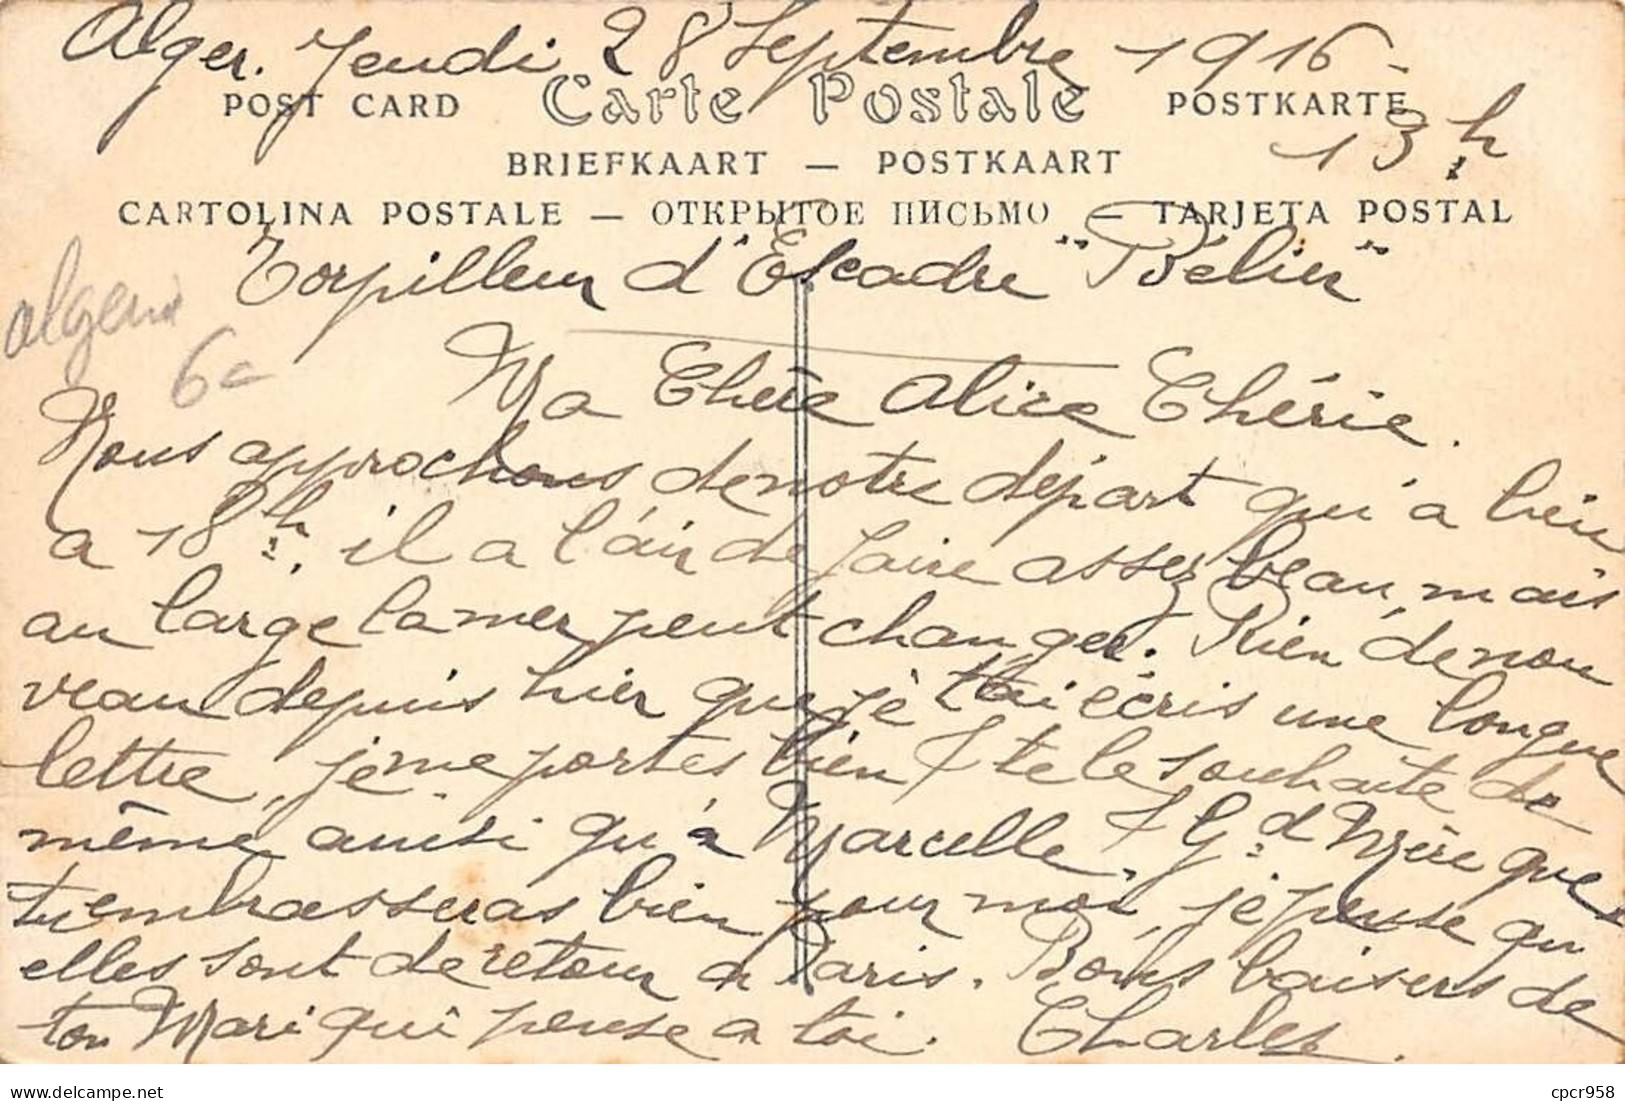 Alger. Jeudi 28 Septembre 1916 -
POST CARD Carte Postale POSTKARTE
13h
BRIEFKAART — POSTKAART
CARTOLINA POSTALE — ОТКРЫТОЕ ПИСЬМО — TARJETA POSTAL
Torpilleur d'Escadre "Bélier"
algerie
6€
Ma Chère Alice Chérie.
Nous approchons de notre départ qui a lieu
a 18h. il a l'air de faire assez beau, mais
au large la mer peut changer. Rien de nou
veau depuis hier que je t'ai écris une longue
lettre, je me portes bien & te le souhaite de
même ainsi qu'a Marcelle & Gd Mère que
tu embrasseras bien pour moi, je pense qu
elles sont de retour a Paris. Bons baisers de
ton Mari qui pense a toi. Charles.
All for collectors
cpcr958